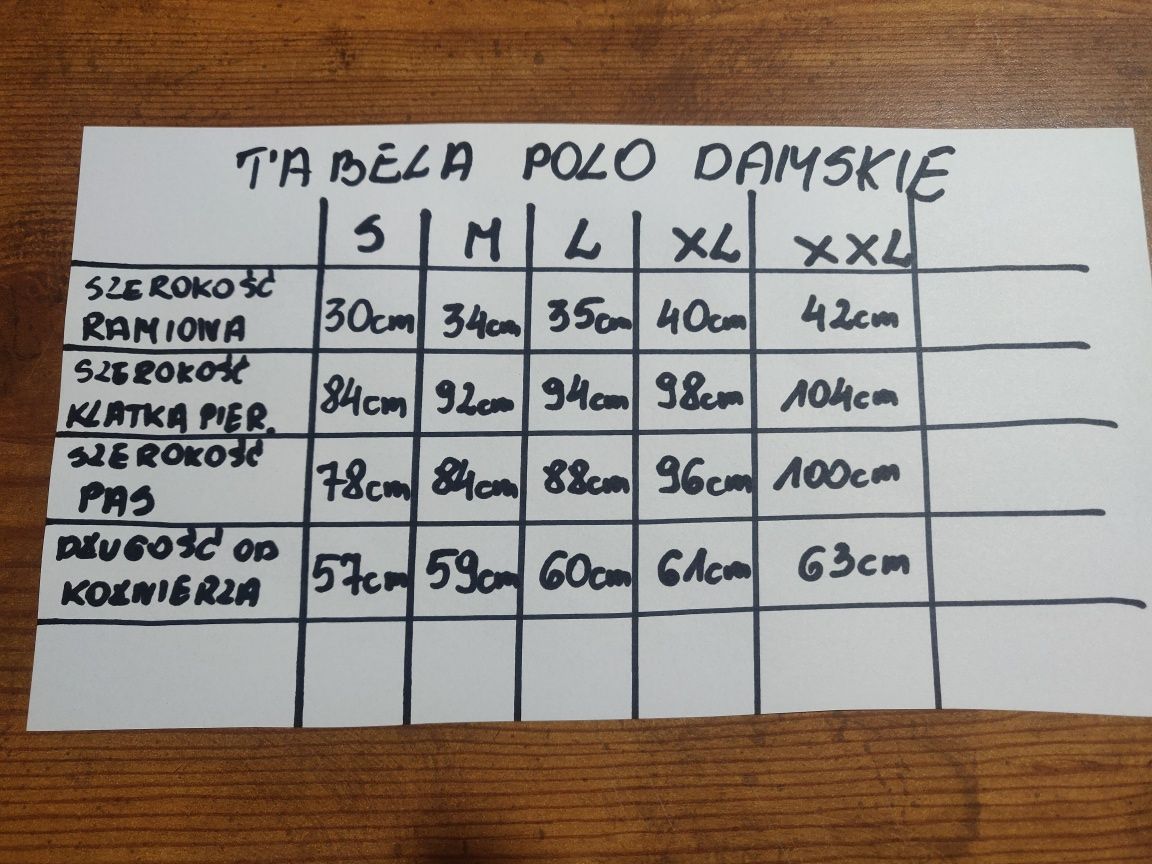 TABELA POLO DAMSKIE
S M L XL XXL
SZEROKOŚĆ
RAMIONA 30cm 34cm 35cm 40cm 42cm
SZEROKOŚĆ
KLATKA PIER. 84cm 92cm 94cm 98cm 104cm
SZEROKOŚĆ
PAS 78cm 84cm 88cm 96cm 100cm
DŁUGOŚĆ OD
KOŁNIERZA 57cm 59cm 60cm 61cm 63cm